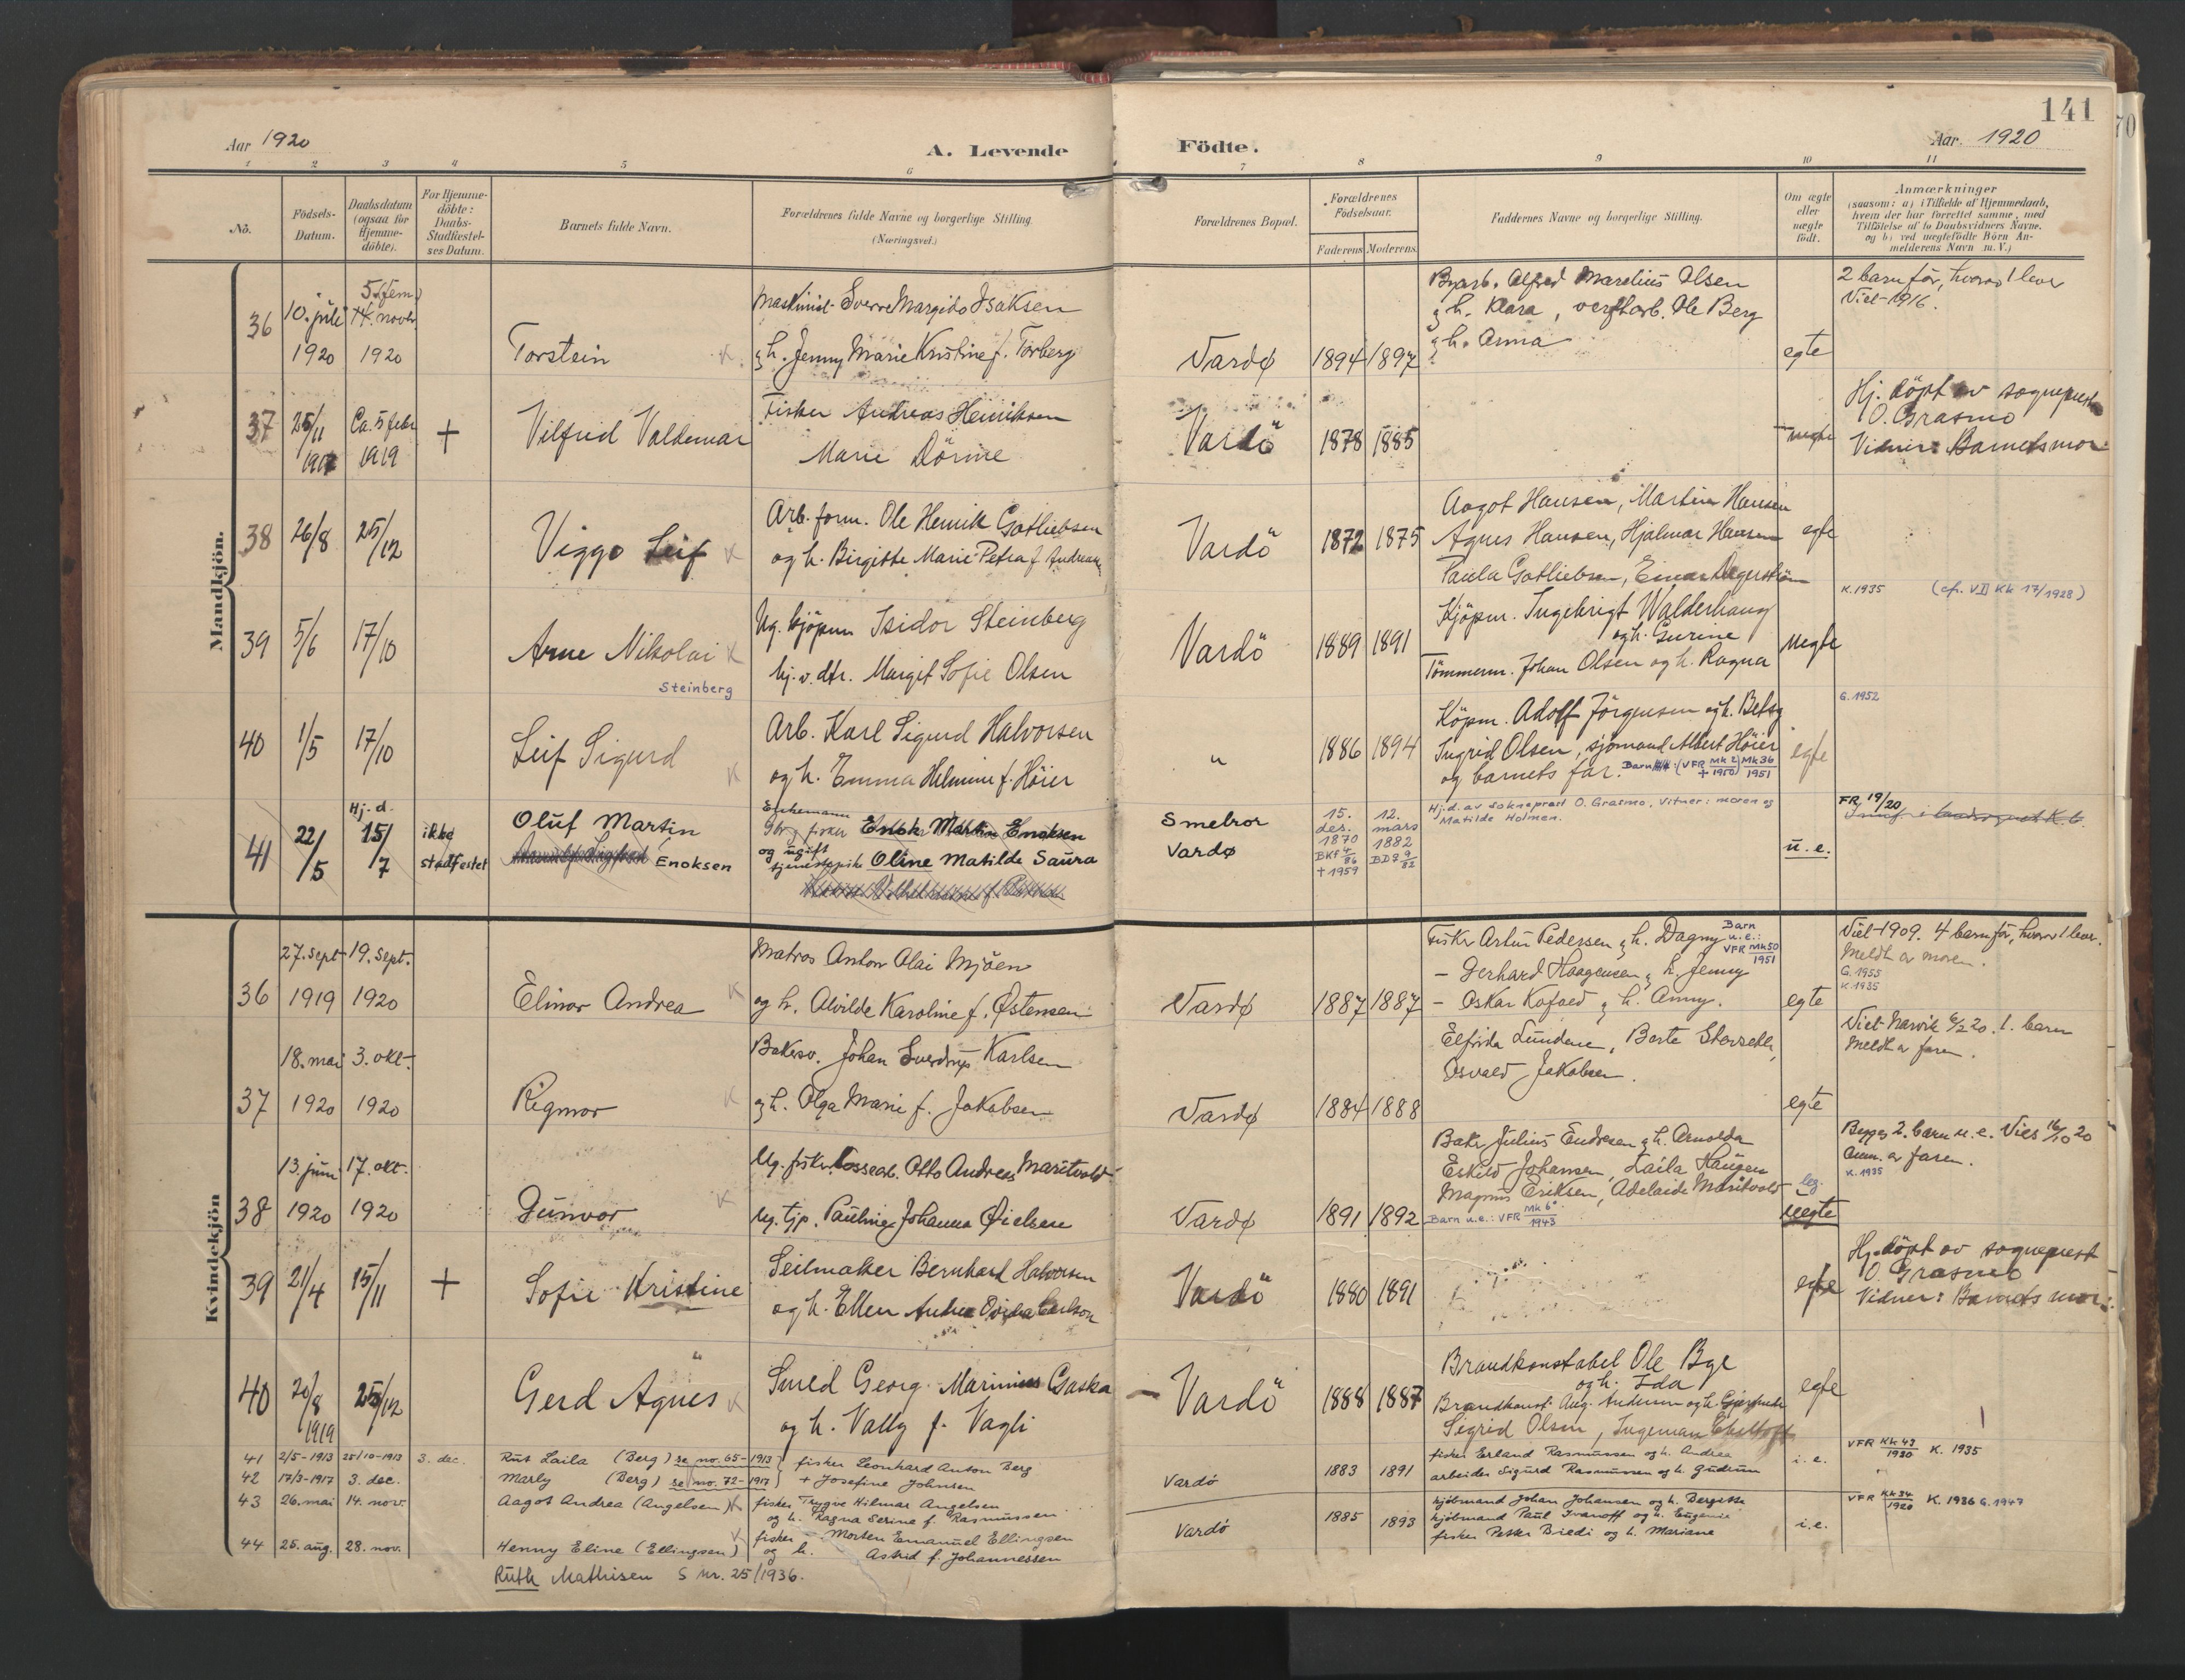 141
Aar 1920
A. Levende
Födte.
Aar. 1920
1 2 3 4 5 6 7 8 9 10 11
No.
Födsels-
Datum.
Daabsdatum
(ogsaa for
Hjemme-
döbte).
For Hjemme-
döbte:
Daabs-
Stadfæstel-
ses Datum.
Barnets fulde Navn.
Forældrenes fulde Navne og borgerlige Stilling.
(Næringsvei.)
Forældrenes Bopæl.
Forældrenes
Födselsaar.
Faderens Moderens
Faddernes Navne og borgerlige Stilling.
Om ægte
eller
uægte
födt.
Anmærkninger
(saasom: a) i Tilfælde af Hjemmedaab,
hvem der har forrettet samme, med
Tilföielse af to Daabsvidners Navne.
og b) ved uægtefödte Börn An-
melderens Navn m. V.)
Mandkjön.
36
10. juli
1920
5. (fem)
14. novbr
1920
Torstein
Maskinist Sverre Margido Isaksen
og h. Jenny Marie Kristine f. Torberg
Vardø
1894 1897
Byarb. Alfred Marelius Olsen
og h. Klara, verftarb. Ole Berg
og h. Anna
egte
2 barn før, hvorav 1 lever
Viet 1916.
37
25/11
Ca. 5 febr
1919
+
Vilfrid Valdemar
Fisker Andreas Henriksen
Marie Dörine
Vardö
1878 1885
uegte
Hj. döpt av sogneprest
O. Grasmo
Vidner: Barnets mor
38
26/8
25/12
Viggo Leif
Arb. form. Ole Henrik Gotliebsen
og h. Birgitte Marie Petra f. Andreas
Vardö
1872 1875
Aagot Hansen, Martin Hansen
Agnes Hansen, Hjalmar Hansen
Paula Gotliebsen, Einar Dagerström
egte
39
5/6
17/10
Arne Nikolai
Steinberg
Ug. kjöpm Isidor Steinberg
hj. v. dtr. Margit Sofie Olsen
Vardö
1889 1891
Kjöpm. Ingebrigt Walderhaug
og h. Gurine
Tömmerm. Johan Olsen og h. Ragna
uegte
K. 1935 (cfr. VII Kk 17/1928)
40
1/5
17/10
Leif Sigurd
Arb. Karl Sigurd Halvorsen
og h. Emma Helmine f. Höier
"
1886 1894
Köpm. Adolf Jörgensen og h. Betsy
Ingrid Olsen, sjömand Albert Höier
og barnets far. Barn (VFR Mk 2 + 1950) Mk 36 1951
egte
G. 1952
41
22/5
Hj. d.
15/7
ikke
stadfestet
Oluf Martin
Enoksen
Enkemann
fisker Enok Martin Enoksen
og ugift
tjenestepike Oline Matilde Saura
Smelror
Vardø
15.
des.
1870
BKf 4/86
+ 1959
12.
mars
1882
BDg 9/82
Hj. d. av sokneprest O. Grasmo, Vitner: moren og
Matilde Holmen.
u. e.
FR 19/20
Kvindekjön
36
27. sept
1919
19. Sept.
1920
Elinor Andrea
Matros Anton Olai Mjöen
og h. Alvilde Karoline f. Østensen
Vardø
1887 1887
Fisker Artur Pedersen og h. Dagny
Barn
u. e.:
VFR Mk 50 1951
– Gerhard Haagensen og h. Jenny
– Oskar Kofoed og h. Anny.
egte
Viet 1909. 4 barn før, hvorav 1 lever.
Meldt av moren.
G. 1955
K. 1935
37
18. mai
1920
3. okt.
1920
Rigmor
Bakersv. Johan Sverdrup Karlsen
og h. Olga Marie f. Jakobsen
Vardø
1884 1888
Elfrida Lundene, Berte
Osvald Jakobsen.
egte
Viet Narvik 6/2 20. 1. barn
Meldt av faren.
38
13. juni
1920
17. okt.
1920
Gunvor
Ug. fisker, lossearb. Otto Andreas Maritvold
Ug. tjp. Pauline Johanna Øielsen
Vardø
1891 1892
Baker Julius Endresen og h. Arnolda
Eskild Johansen, Laila Haugen
Magnus Eriksen, Adelaide Maritvold
Barn u. e.: VFR Mk 6 1943
leg.
uegte
Begges 2. barn u. e. Vies 16/10 20
Anm. av faren.
K. 1935
39
21/4
15/11
+
Sofie Kristine
Seilmaker Bernhard Halvorsen
og h. Ellen Andrea Ovidia Carlson
Vardö
1880 1891
egte
Hj. döpt av sogneprest
O. Grasmo
Vidner: Barnets mor.
40
20/8
1919
25/12
Gerd Agnes
Smed Georg Marinius Gaska
og h. Vally f. Vagli
Vardö
1888 1887
Brandkonstabel Ole Bye
og h. Ida
Brandkonst. Aug. Andersen og h.
Sigrid Olsen, Ingeman
egte
41 2/5-1913 25/10-1913 3. dec. Rut Laila (Berg) se no. 65-1913
42 17/3-1917 3. dec. Marly (Berg) se no. 72-1917
fisker Leonhard Anton Berg
+ Josefine Johnsen
43 26. mai 14. nov. Aagot Andrea (Angelsen)
fisker Trygve Hilmar Angelsen
og h. Ragna Serine f. Rasmussen
Vardö
1883 1891
fisker Erland Rasmussen og h. Andrea
arbeider Sigurd Rasmussen og h. Gudrun
i. e.
VFR Kk 43 1920 K. 1935
44 25. aug. 28. nov. Henny Eline (Ellingsen)
fisker Morten Emanuel Ellingsen
og h. Astrid f. Johannessen
Vardö
1885 1893
kjöbmand Johan Johansen og h. Bergitte
kjöbmand Paul Ivanoff og h. Eugenie
fisker Petter Biedi og h. Mariane
i. e.
VFR Kk 34 1920 K. 1936 G. 1947
Ruth Mathisen S nr. 25/1936.